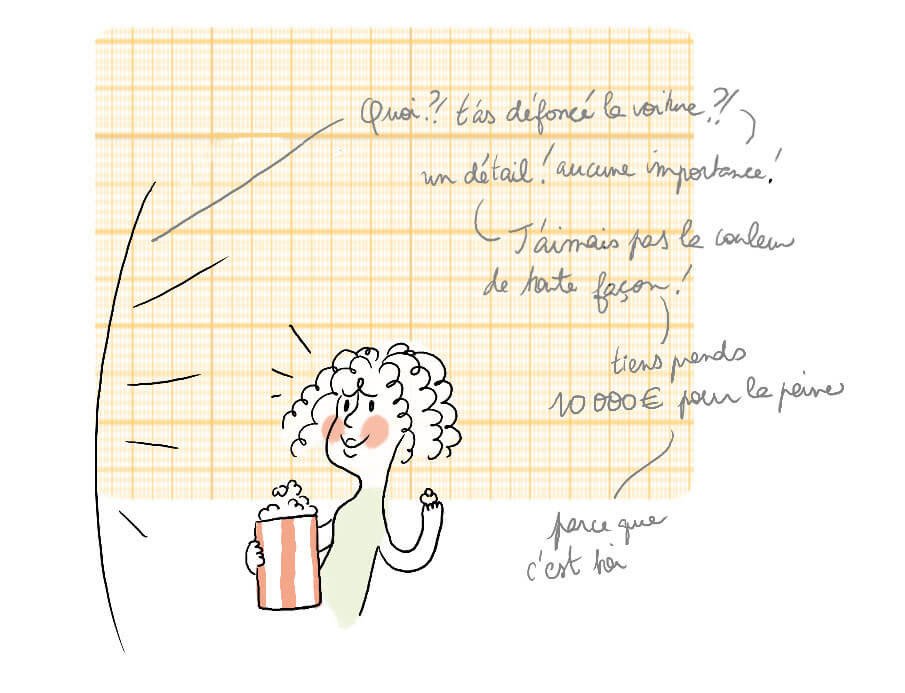 Quoi ?! t'as défoncé la voiture ?!
un détail ! aucune importance !
J'aimais pas la couleur
de toute façon !
tiens prends
10 000 € pour la peine
parce que
c'est toi